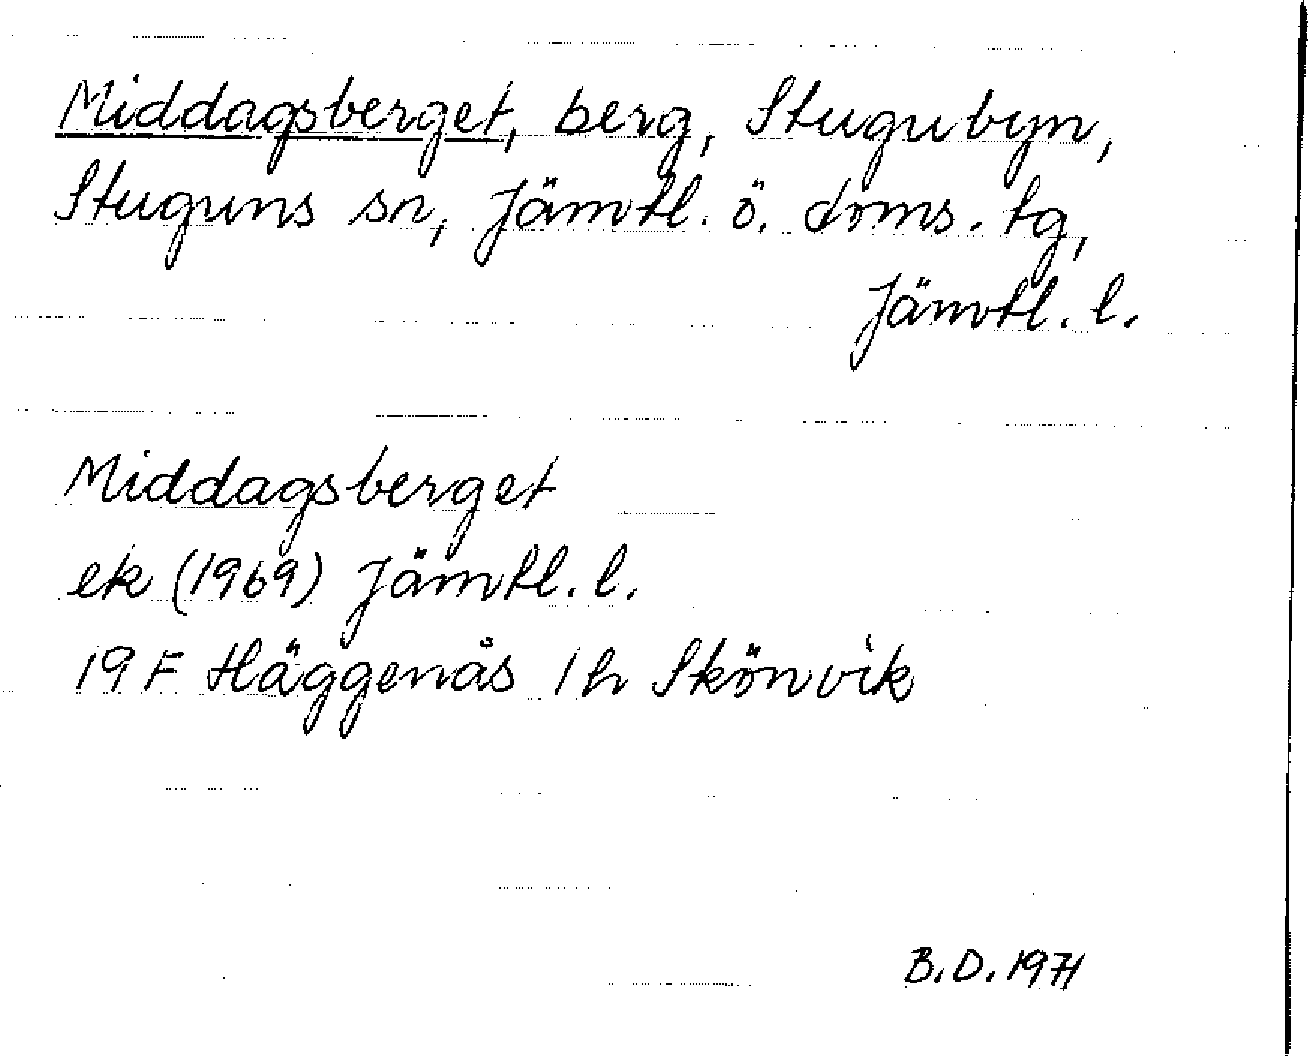 Middagsberget, berg, Stugubyn,
Stuguns sn, Jämtl. ö. doms. tg,
Jämtl. l.
Middagsberget
ek (1969) Jämtl. l.
19 F Häggenås 1 h Skönvik
B.D. 1971